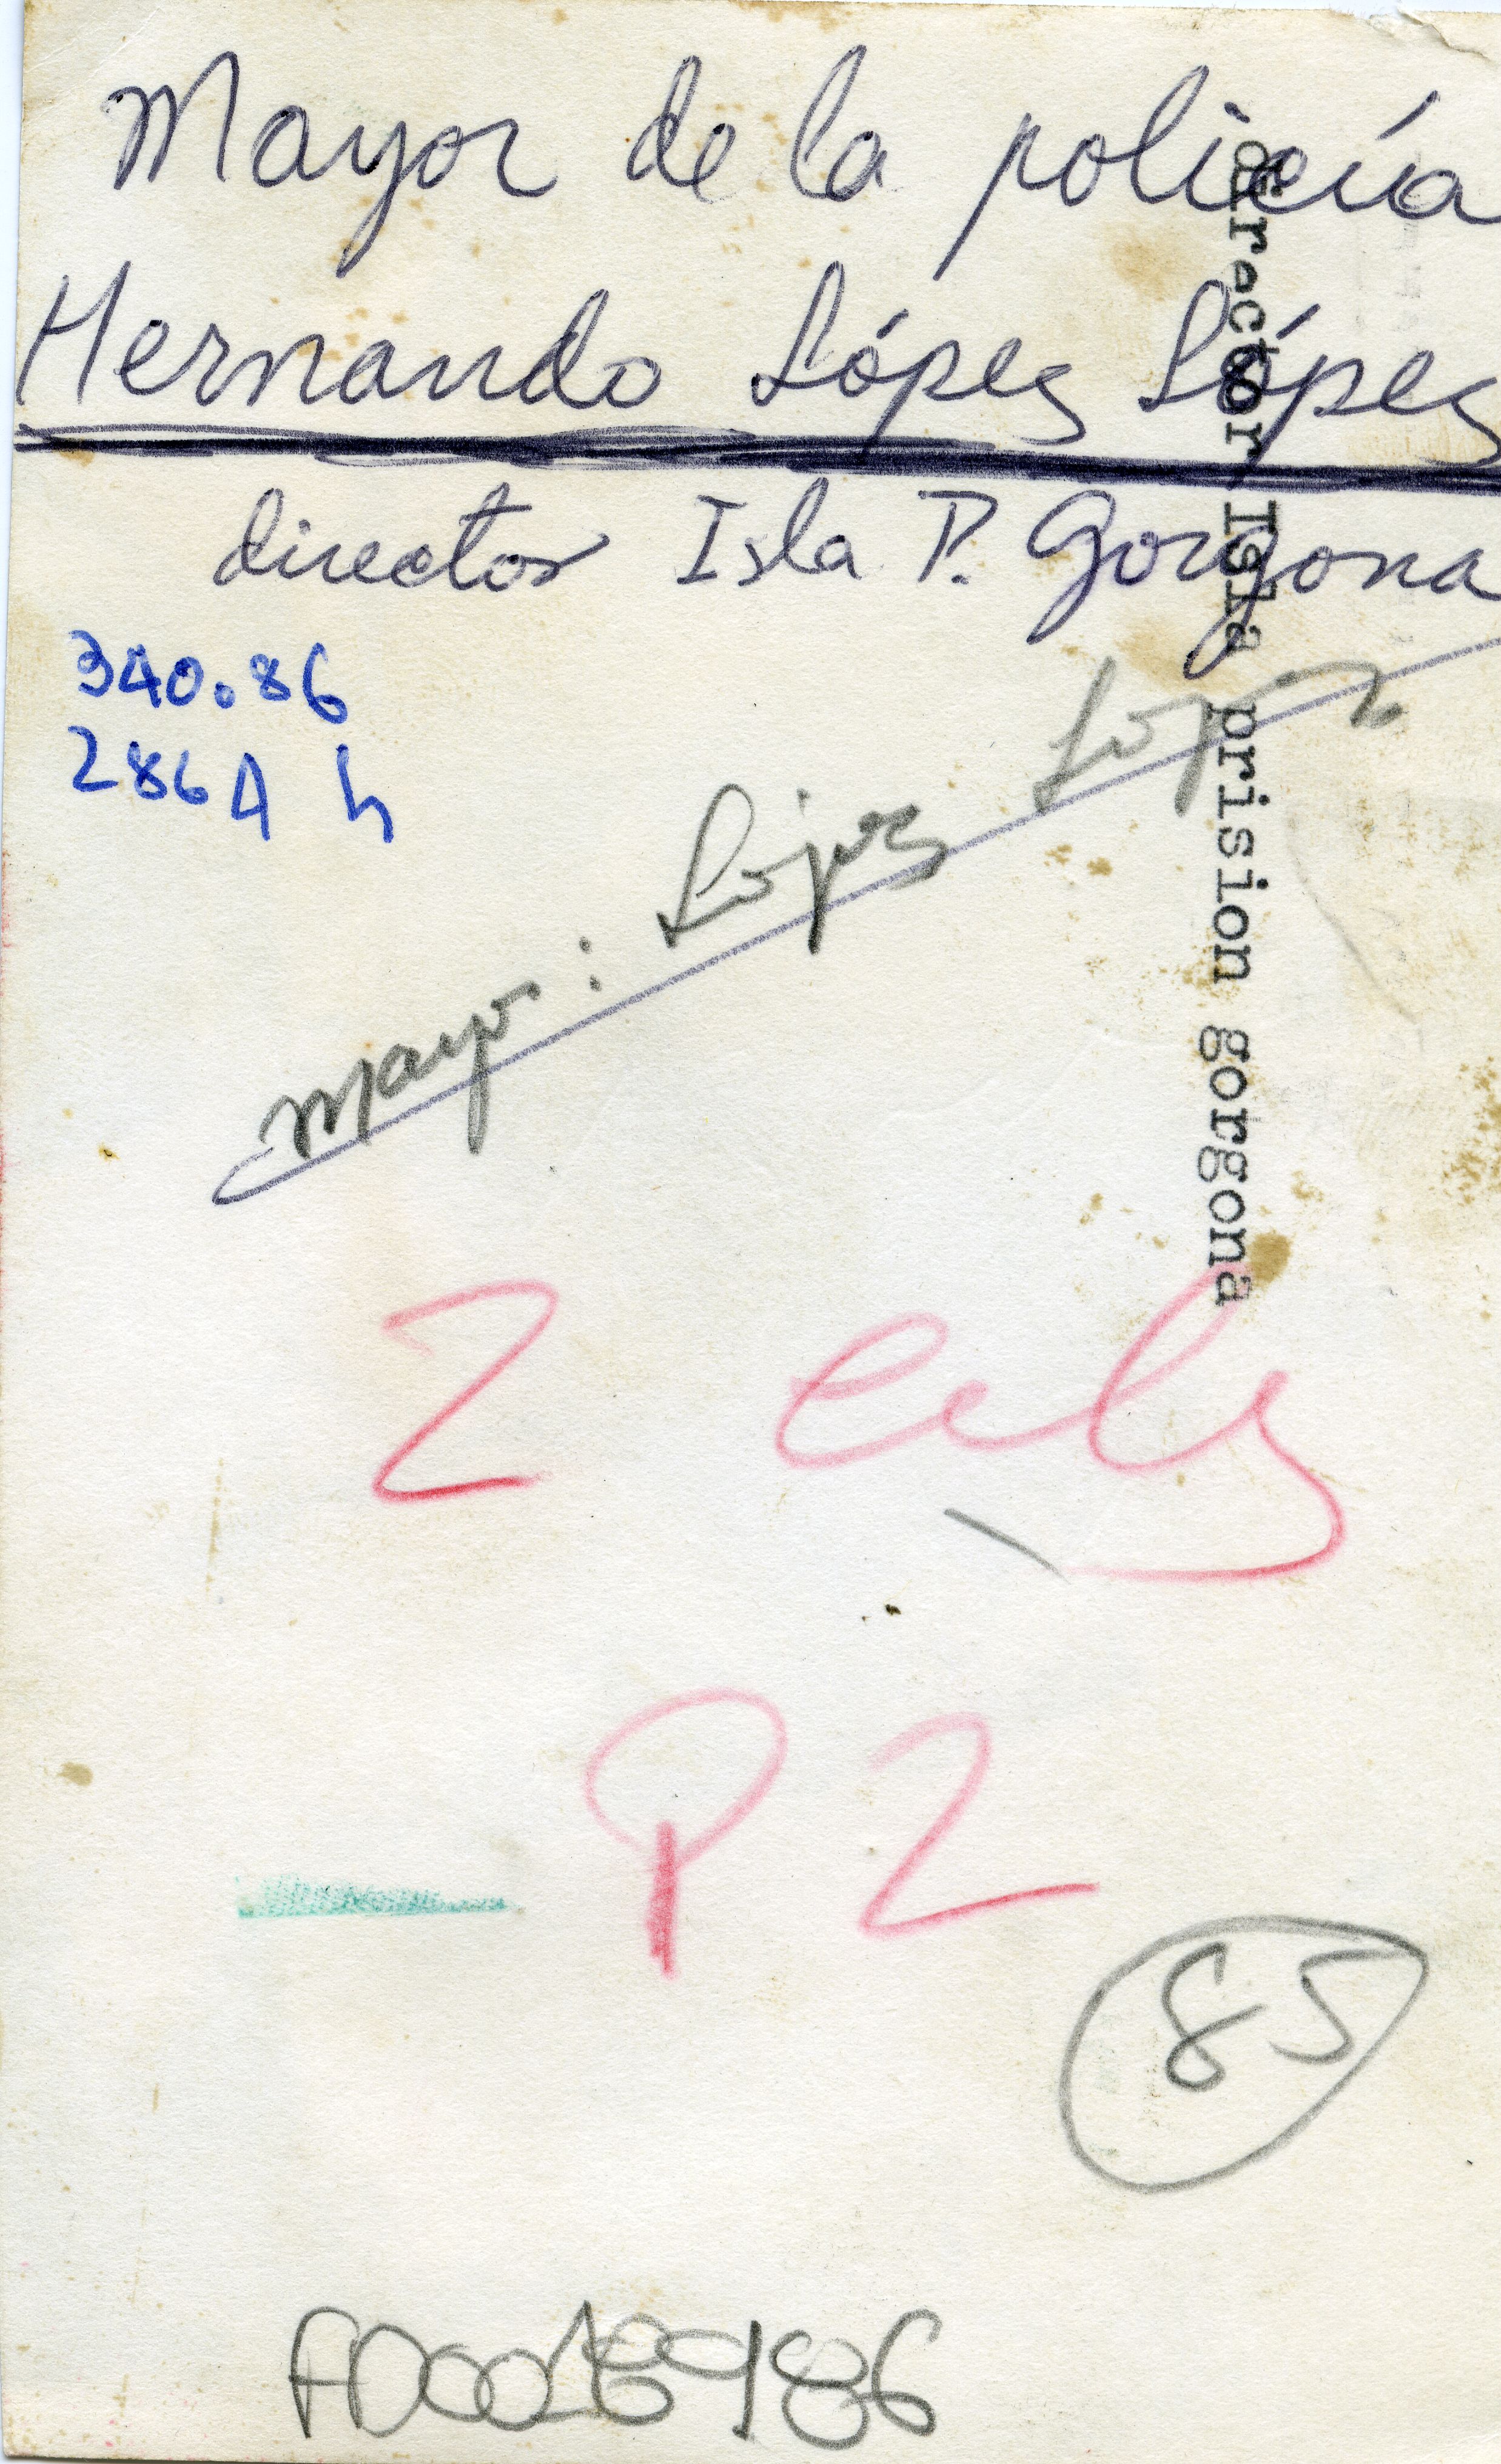 Mayor de la policía
Hernando López López
director Isla P. Gorgona
director Isla prision gorgona
340.86
286 A h
Mayor: López López
2 cols
P 2
85